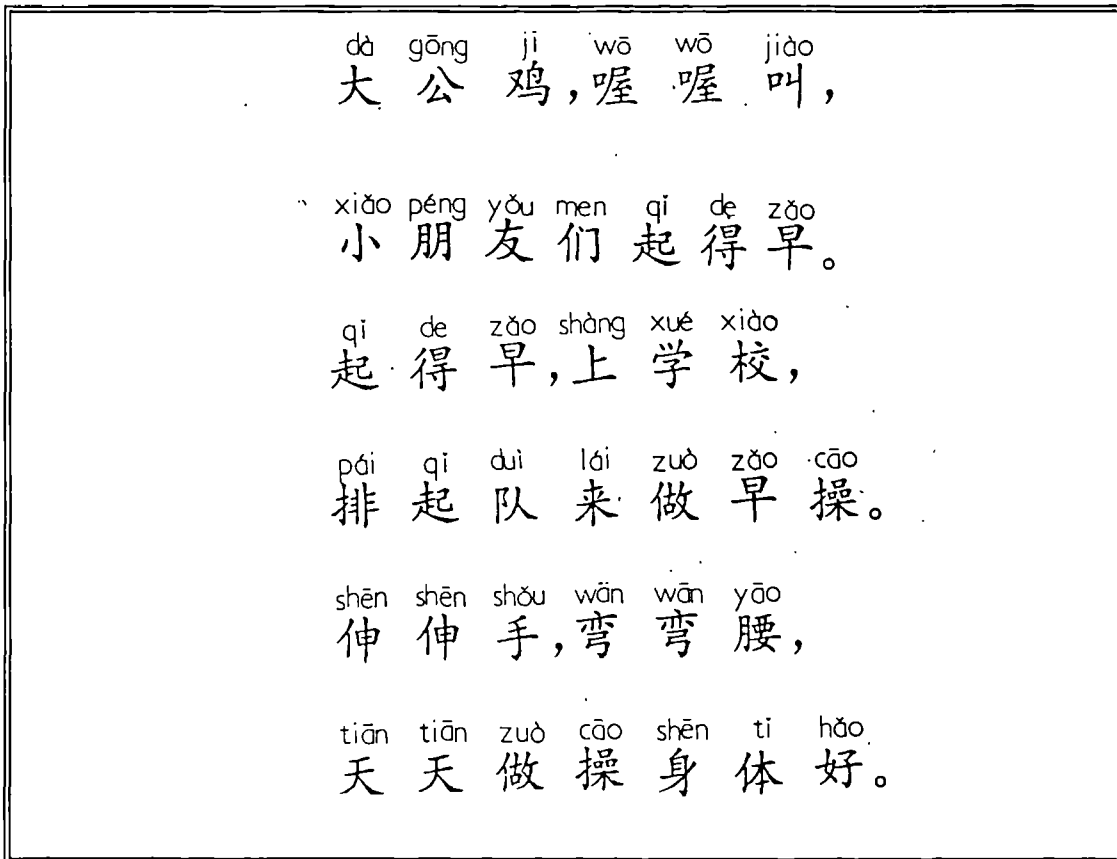 dà gōng jī wō wō jiào
大公鸡,喔喔叫,
xiǎo péng yǒu men qǐ de zǎo
小朋友们起得早。
qǐ de zǎo shàng xué xiào
起得早,上学校,
pái qǐ duì lái zuò zǎo cāo
排起队来做早操。
shēn shēn shǒu wān wān yāo
伸伸手,弯弯腰,
tiān tiān zuò cāo shēn tǐ hǎo
天天做操身体好。